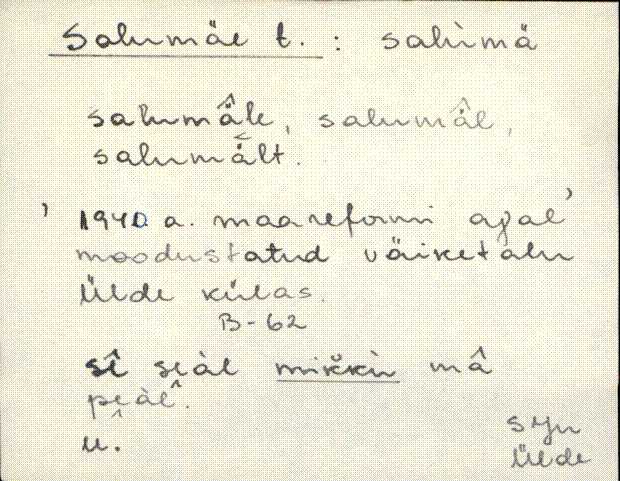 Salumäe t. : salumä
salumä̂le, salumä̂l,
salumä̂lt.
' 1940 a. maareformi ajal '
moodustatud väiketalu
Ülde külas.
B-62
sî siàl mikkù mâ
piàl̂.
u.
Syn
Ülde